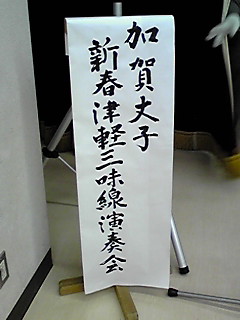 加賀丈子
新春津軽三味線演奏会